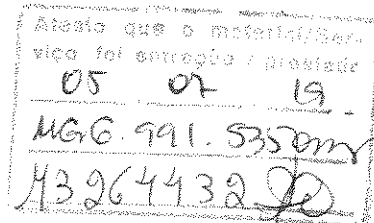 Atesto que o material/Ser-
viço foi entregue / prestado
05 07 19
MG6.991.535
13264432